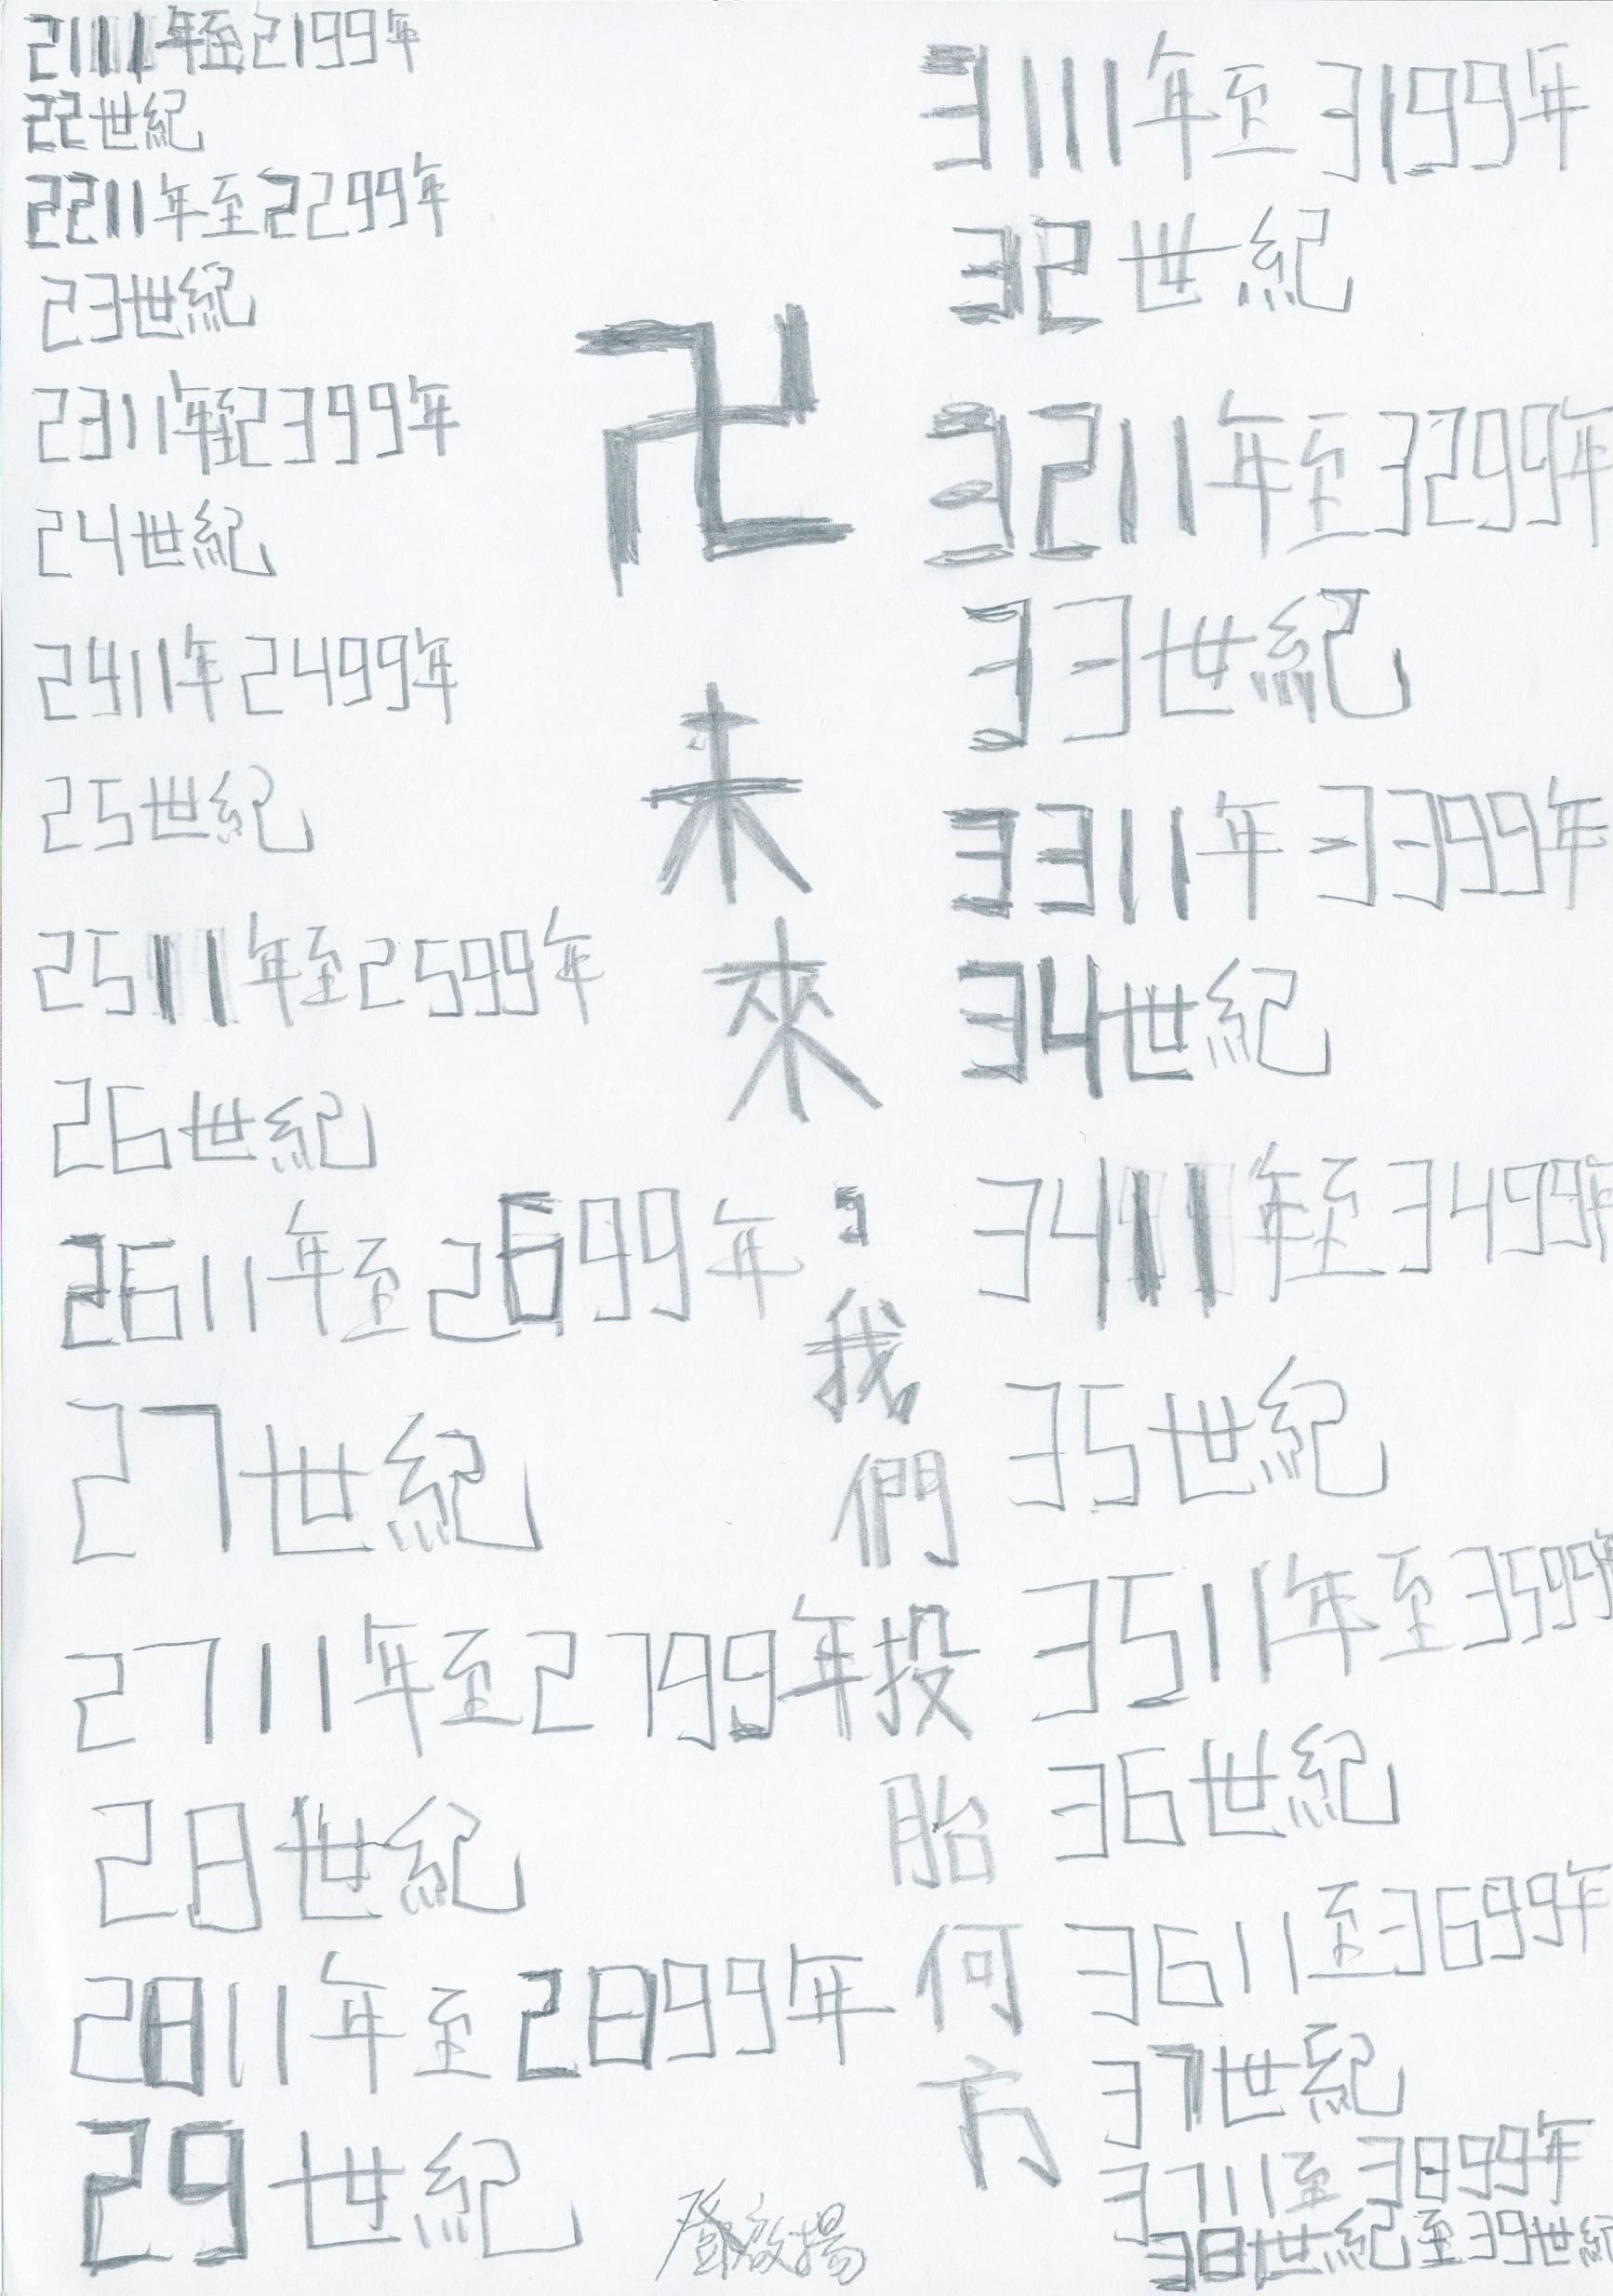 2111年至2199年
22世紀
2211年至2299年
23世紀
2311年至2399年
24世紀
2411年2499年
25世紀
2511年至2599年
26世紀
2611年至2699年
27世紀
2711年至2799年
28世紀
2811年至2899年
29世紀
卍未來，我們投胎何方
3111年至3199年
32世紀
3211年至3299年
33世紀
3311年3399年
34世紀
3411年至3499年
35世紀
3511年至3599年
36世紀
3611至3699年
37世紀
3711至3899年
38世紀至39世紀